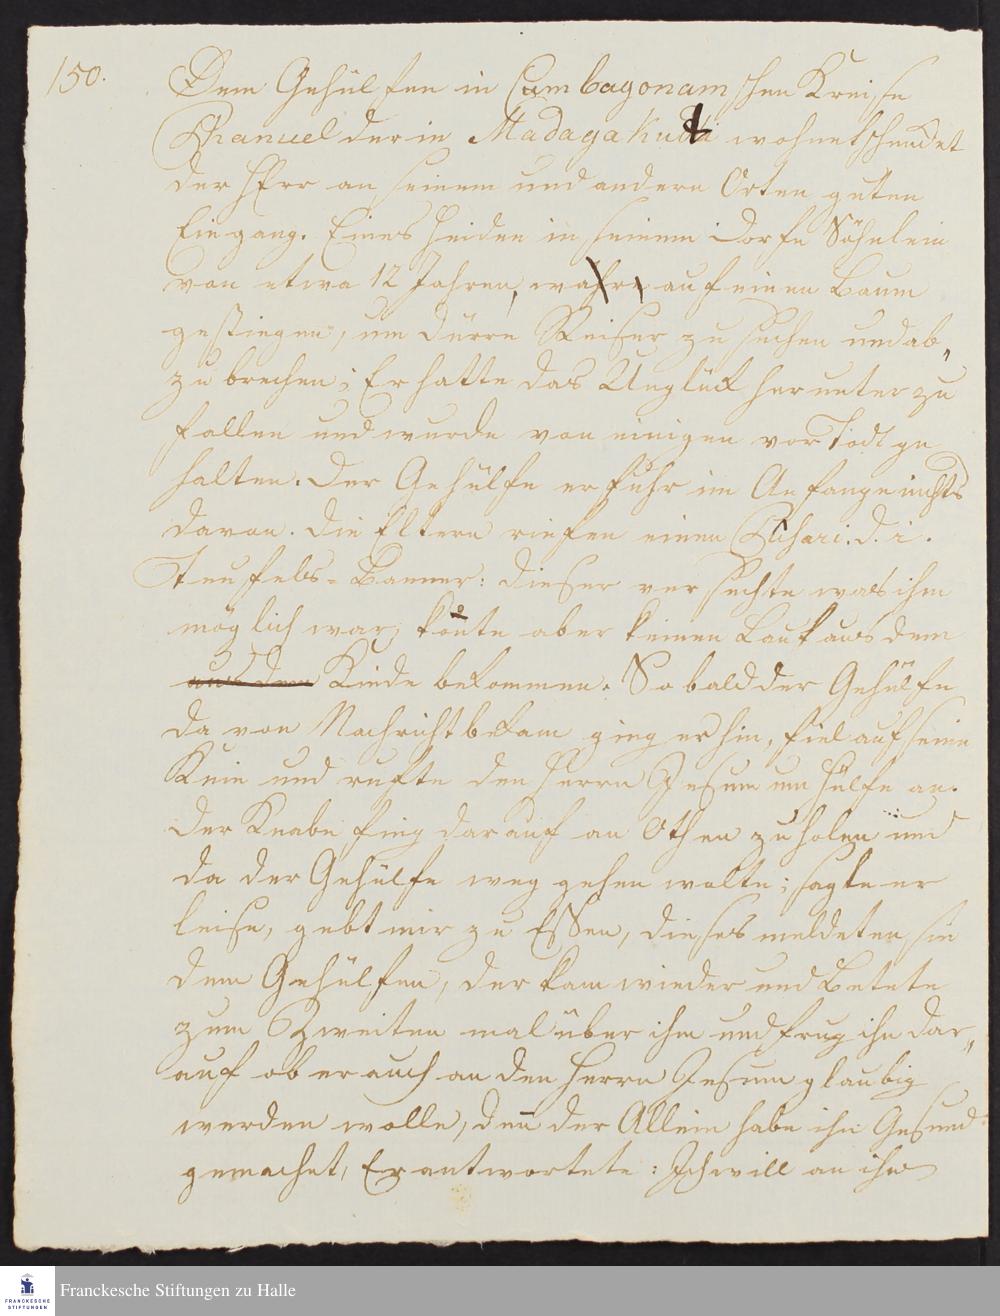 150.
Dem Gehülfen in Cumbagonamschen Kreise
Rhanuel der in Madagakudi wohnet schencket
der HErr an seinem und andern Orten guten
Eingang. Eines Heiden in seinem Dorfe Söhnlein
von etwa 12 Jahren, wahr auf einen Baum
gestiegen, um dürre Reiser zu suchen und ab„
zu brechen; Er hatte das Unglück herunter zu
fallen und wurde von einigen vor Todt ge
halten. Der Gehülfe erfuhr im Anfange nichts
davon. Die Eltern riefen einen d. i.
Teufels-Banner: dieser versuchte was ihm
möglich war, konte aber keinen Laut aus dem
aus dem Kinde bekommen. So bald der Gehülfe
da von Nachricht bekam ging er hin, fiel auf seine
Knie und rufte den Herrn Jesum um Hülfe an.
Der Knabe fing darauf an Othen zu holen und
da der Gehülfe weg gehen wolte; sagte er
leise, gebt mir zu Essen, dieses meldeten sie
dem Gehülfen, der kam wieder und Betete
zum Zweiten mal über ihm und frug ihn dar„
auf ob er auch an den Herrn Jesum glaubig
werden wolle, deñ der Allein habe ihn Gesund
gemachet, Er antwortete: Ich will an ihn
FRANCKESCHE
STIFTUNGEN
Franckesche Stiftungen zu Halle